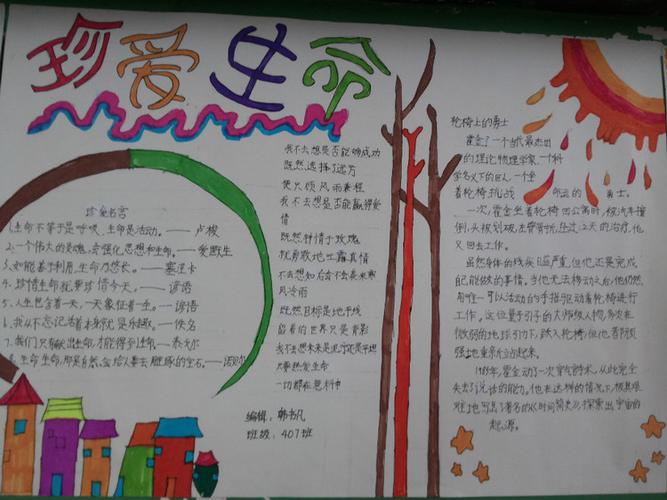 珍爱生命
珍爱名言
1.生命不等于是呼吸,生命是活动。——卢梭
2.一个伟大的灵魂,会强化思想和生命。——爱默生
3.如能善于利用,生命乃悠长。——塞涅卡
4.珍惜生命就要珍惜今天。——谚语
5.人生包含着一天,一天象征着一生。——谚语
6.我从不忘记活着本身就是乐趣。——佚名
7.我们只有献出生命,才能得到生命——泰戈尔
8.生命,那是自然会给人类去雕琢的宝石。——诺贝尔
我不去想是否能够成功
既然选择了远方
便只顾风雨兼程
我不去想是否能赢得爱
情
既然钟情于玫瑰
就勇敢地吐露真情
不去想身后会不会袭来寒
风冷雨
既然目标是地平线
留着的世界只是背影
我不去想未来是泥泞还是平坦
只要热爱生命
一切都在意料中
编辑:韩书凡
班级:407班
轮椅上的勇士
霍金了一个当代最杰出
的理论物理学家,一个科
学名义下的巨人,一个坐
着轮椅,挑战 命运的 勇士。
一次,霍金坐着轮椅回公寓时,被汽车撞
倒,头被划破,左臂骨折,但过2天的治疗,他
又回去工作。
虽然身体的残疾日益严重,但他还是完成
自己能做的事情。当他无法移动之后,他仍然
用唯一可以活动的手指驱动着轮椅进行
工作。这位量子引子的大师级人物,多次在
微弱的地球引力下,跌入轮椅,但他都顽
强地重新站起来。
1985年,霍金动了一次穿气管手术,从此完全
失去了说话的能力。他在这样的情况下,极其艰
难地写出了著名的《时间简史》,探索出宇宙的
起源。